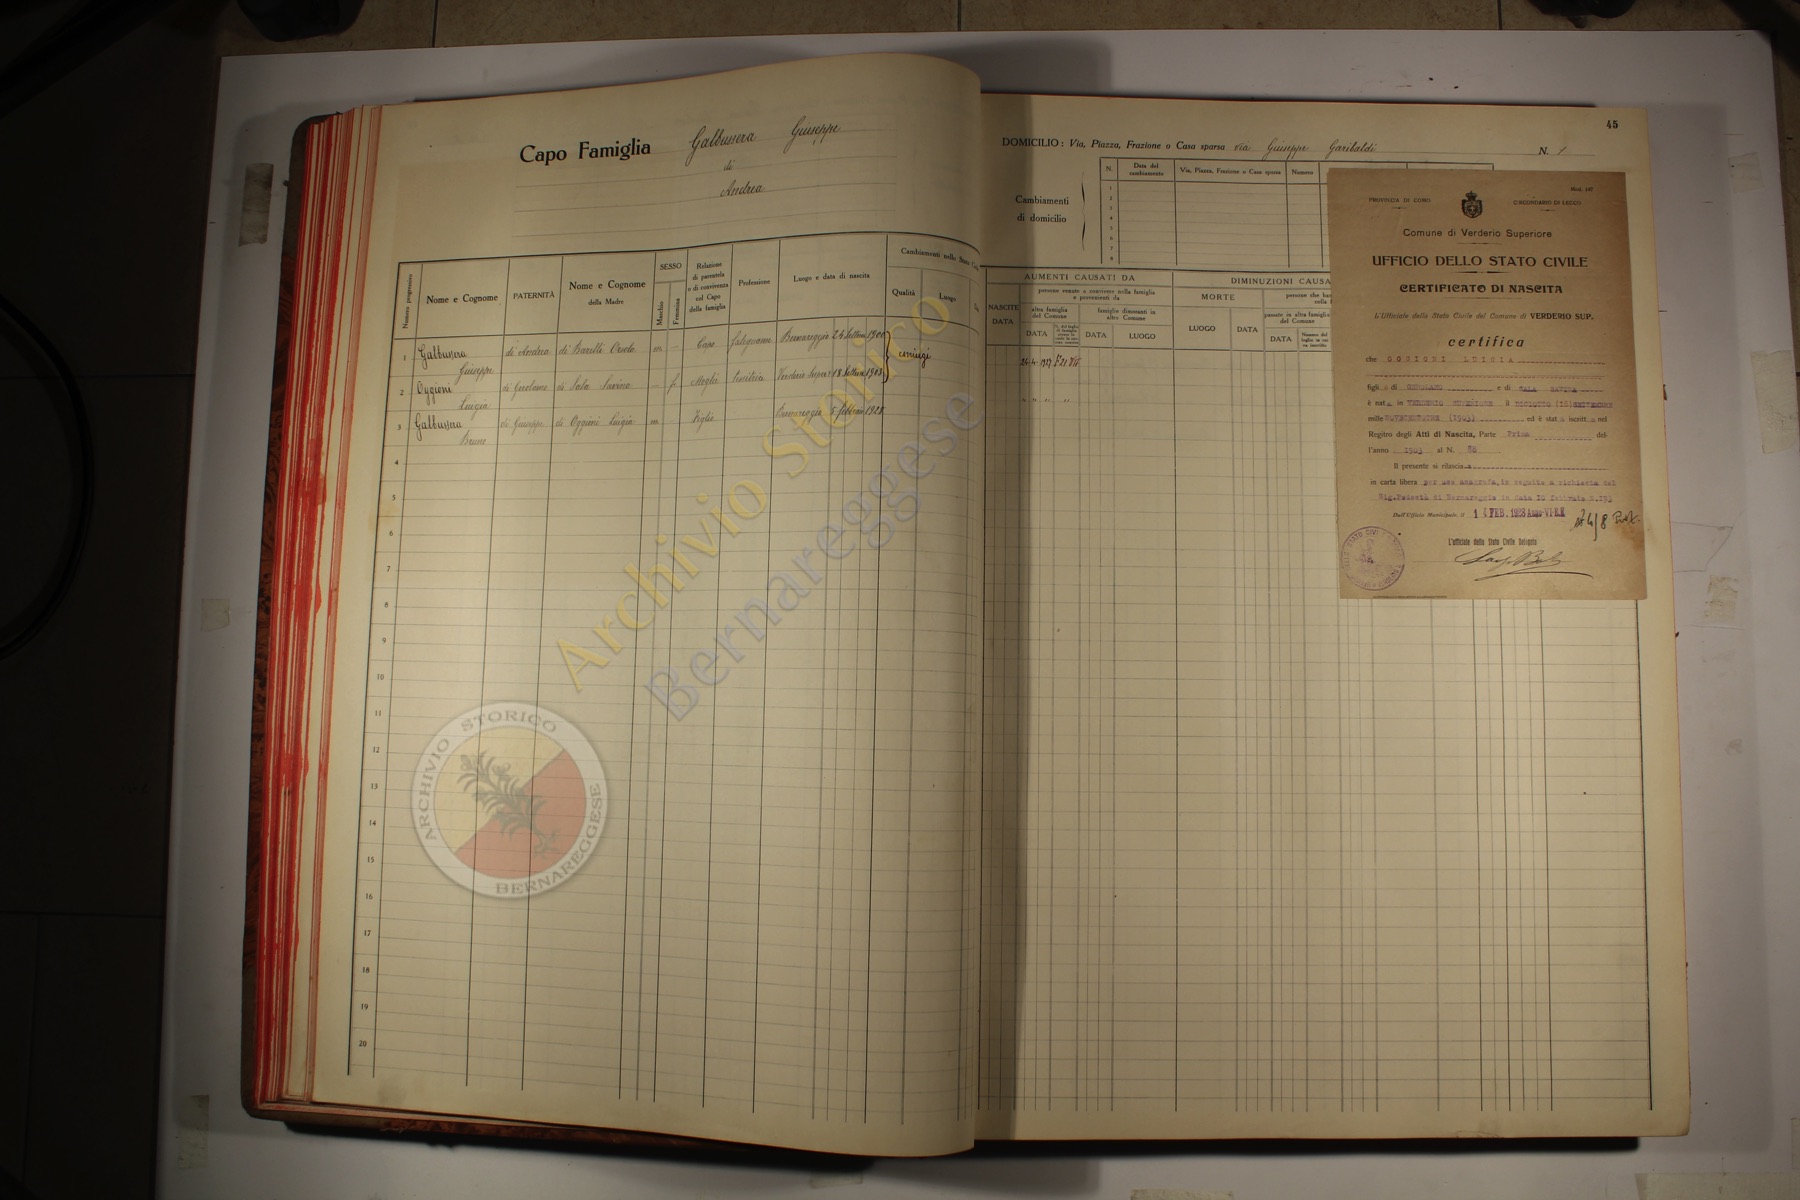 Capo Famiglia Galbussera Giuseppe
di
Andrea
Numero progressivo
Nome e Cognome
PATERNITÀ
Nome e Cognome
della Madre
SESSO
Maschio
Femmina
Relazione
di parentela
o di convivenza
col Capo
della famiglia
Professione
Luogo e data di nascita
Cambiamenti nello Stato
Qualità
Luogo
1 Galbussera Giuseppe di Andrea di Barelli Orsola m - Capo falegname Bernareggio 24 Settem 1900
coniugi
2 Oggioni Luigia di Gerolamo di Sala Savina - f Moglie Verderio Super 18 Settem 1903
3 Galbussera Bruno di Giuseppe di Oggioni Luigia m - Figlio 5 febbraio 1928
4
5
6
7
8
9
10
11
12
13
14
15
16
17
18
19
20
45
DOMICILIO: Via, Piazza, Frazione o Casa sparsa via Giuseppe Garibaldi N. 1
Cambiamenti
di domicilio
N.
Data del
cambiamento
Via, Piazza, Frazione o Casa sparsa
Numero
1
2
3
4
5
6
7
8
AUMENTI CAUSATI DA
DIMINUZIONI CAUSA
NASCITE
DATA
persone venute a convivere nella famiglia
e provenienti da
altra famiglia
del Comune
famiglie dimoranti in
altro Comune
DATA
DATA
LUOGO
MORTE
LUOGO
DATA
persone che han
passate in altra famiglia
del Comune
DATA
24-4-1927
" " " "
Mod. 147
PROVINCIA DI COMO
CIRCONDARIO DI LECCO
Comune di Verderio Superiore
UFFICIO DELLO STATO CIVILE
CERTIFICATO DI NASCITA
L'Ufficiale dello Stato Civile del Comune di VERDERIO SUP.
certifica
che OGGIONI LUIGIA
figli a di GEROLAMO e di SALA SAVINA
è nat a in VERDERIO SUPERIORE il DICIOTTO (18) SETTEMBRE
mille NOVECENTOTRE (1903) ed è stat a iscritt a nel
Registro degli Atti di Nascita, Parte Prima del-
l'anno 1903 al N. 28
Il presente si rilascia
in carta libera per uso anagrafe, in seguito a richiesta del
Sig. Podestà di Bernareggio in data 10 febbraio N. 193
Dall'Ufficio Municipale, li 1 FEB. 1928 Anno VI E.F.
L'ufficiale dello Stato Civile Delegato
Archivio Storico
Bernareggese
ARCHIVIO STORICO
BERNAREGGESE